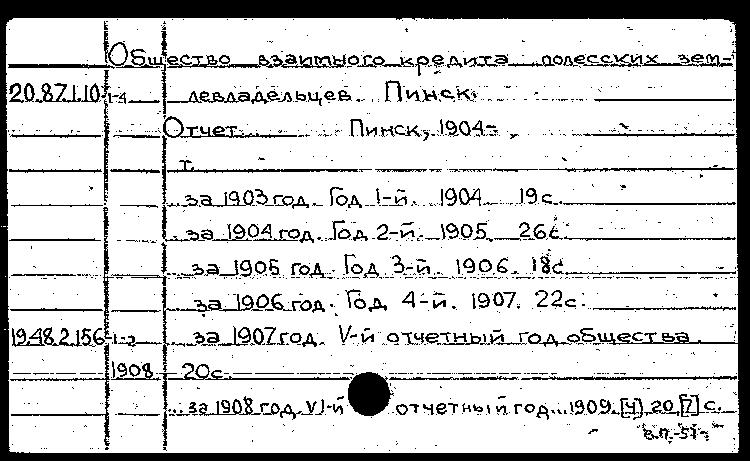 Общество взаимного кредита полесских зем-
20.87.1.10 1-4 левладельцев. Пинск.
Отчет. Пинск, 1904-
т.
за 1903 год. Год 1-й. 1904. 19с.
за 1904 год. Год 2-й. 1905. 26с.
за 1905 год. Год 3-й. 1906. 18с.
за 1906 год. Год 4-й. 1907. 22с.
19.48.2.156 1-2 за 1907 год. V-й отчетный год общества.
1908. 20с.
за 1908 год. VI-й отчетный год. 1909. [4] 20 [7] с.
в.п.-51г